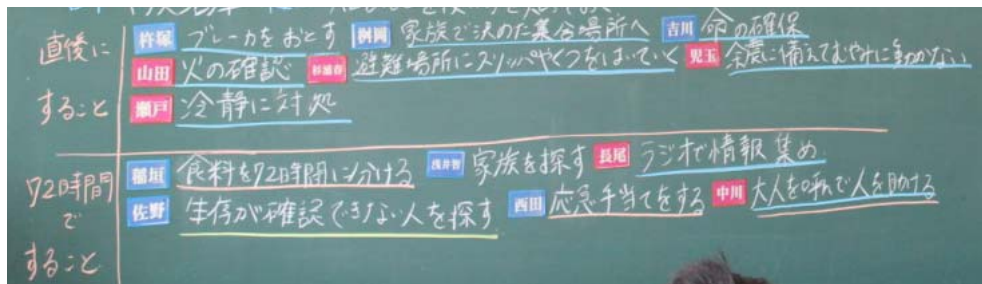 直後に
すること
杵塚 ブレーカをおとす 桝岡 家族で決めた集合場所へ 吉川 命の確保
山田 火の確認 杉浦春 避難場所にスリッパやくつをはいていく 児玉 余震に備えてむやみに動かない
瀬戸 冷静に対処
72時間
で
すること
稲垣 食料を72時間に分ける 浅井智 家族を探す 長尾 ラジオで情報集め
佐野 生存が確認できない人を探す 西田 応急手当てをする 中川 大人を呼んで人を助ける